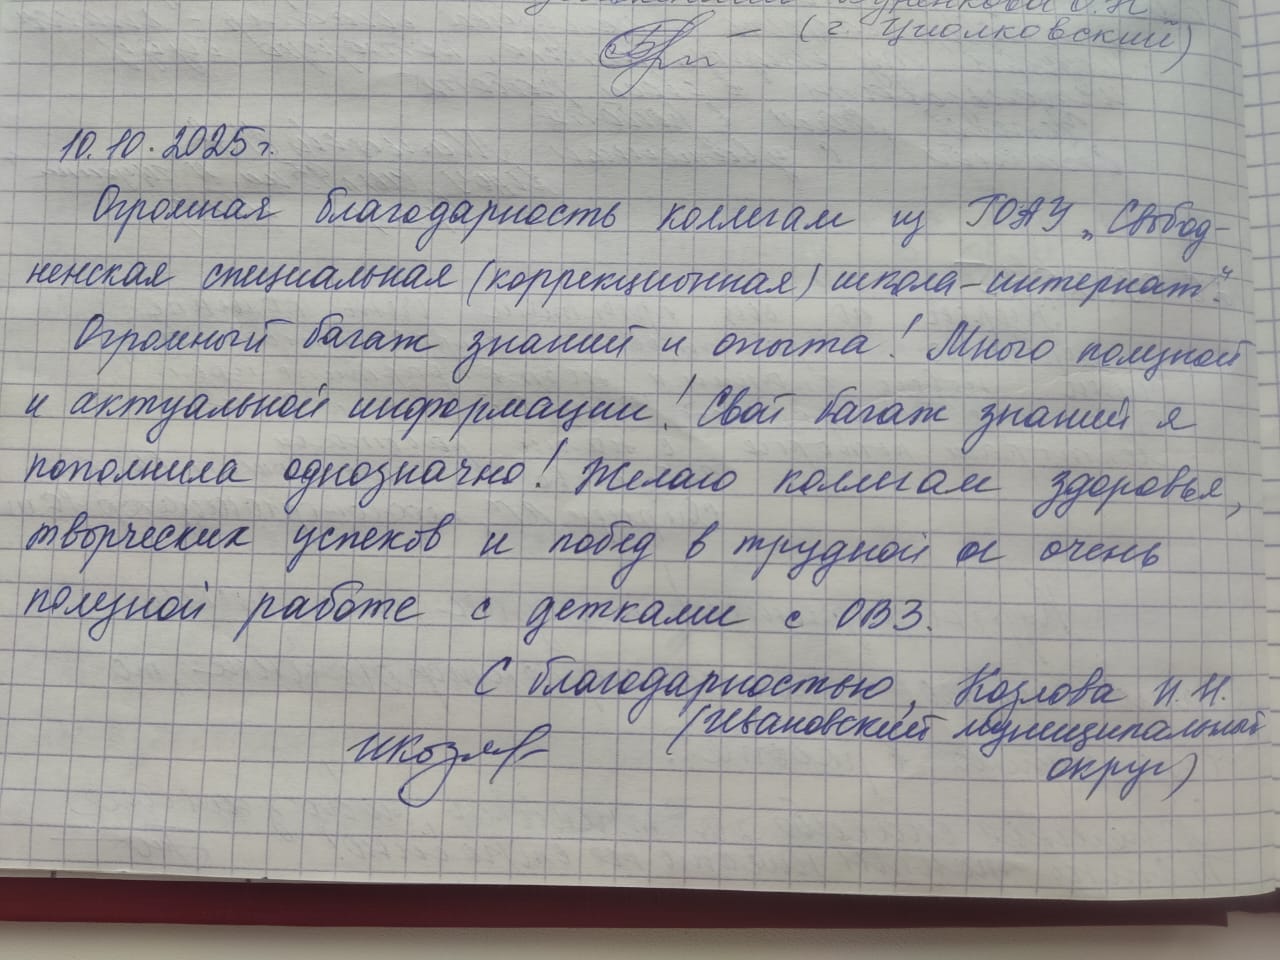 (г. Циолковский)
10.10.2025г.
Огромная благодарность коллегам из ГОАУ „Свобод-
ненская специальная (коррекционная) школа-интернат“.
Огромный багаж знаний и опыта! Много полезной
и актуальной информации! Свой багаж знаний я
пополнила однозначно! Желаю коллегам здоровья,
творческих успехов и побед в трудной и очень
полезной работе с детками с ОВЗ.
С благодарностью, Козлова И.Н.
(Ивановский муниципальный
округ)